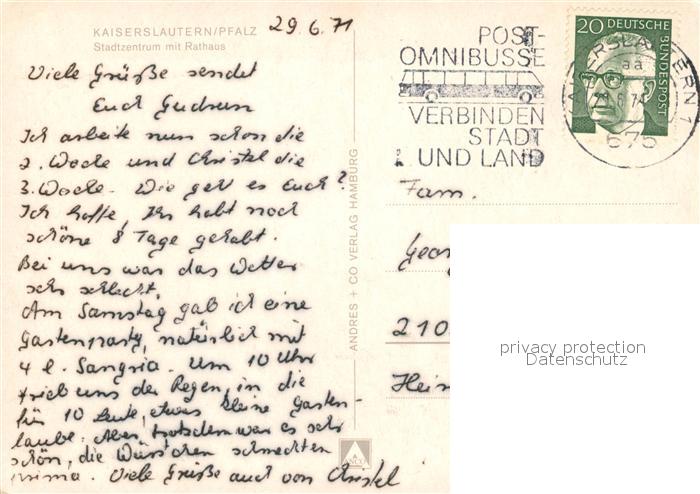 KAISERSLAUTERN/PFALZ
Stadtzentrum mit Rathaus
29.6.71
Viele Grüße sendet
Euch Gudrun
Ich arbeite nun schon die
2. Woche und Christel die
3. Woche. Wie geht es Euch?
Ich hoffe, Ihr habt noch
schöne 8 Tage gehabt.
Bei uns war das Wetter
sehr schlecht.
Am Samstag gab ich eine
Gartenparty, natürlich mit
4 l. Sangria. Um 10 Uhr
trieb uns der Regen, in die
für 10 Leute, etwas kleine Garten-
laube. Aber, trotzdem war es sehr
schön, die Würstchen schmeckten
prima. Viele Grüße auch von Christel
ANDRES + CO VERLAG HAMBURG
ANCO
POST-
OMNIBUSSE
VERBINDEN
STADT
UND LAND
KAISERSLAUTERN 1
aa
675
20 DEUTSCHE
BUNDESPOST
Fam.
Geor
210
Hein
privacy protection
Datenschutz